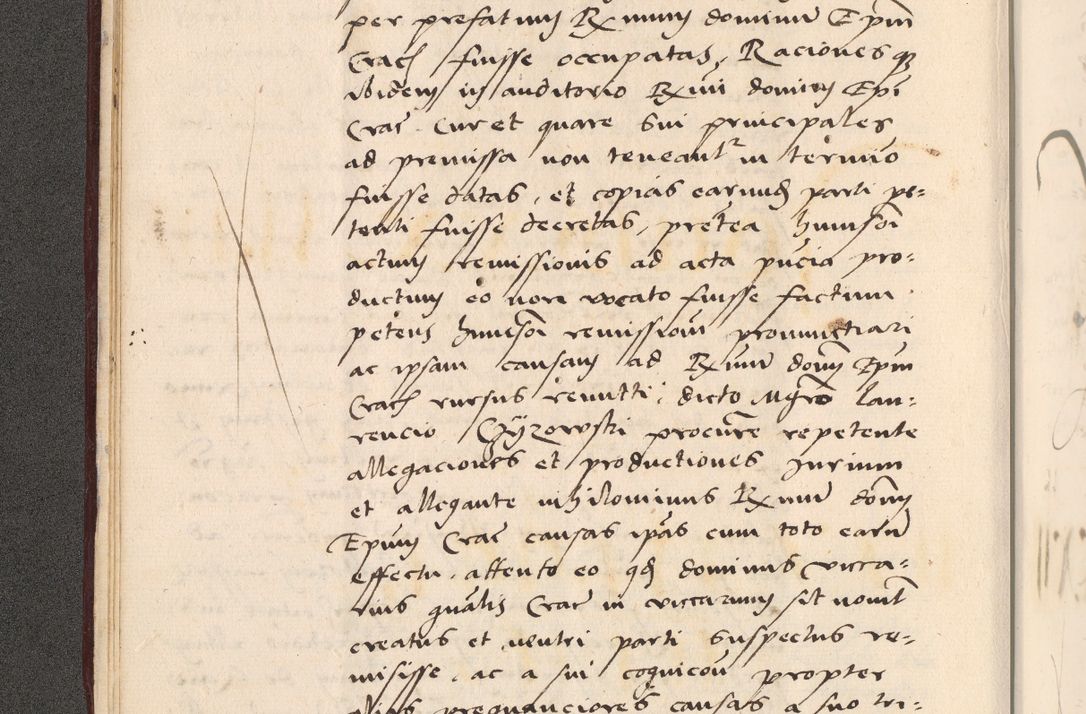 per prefatum Rxmum dominum Epm̄
Crac̄ fuisse occupatas, Raciones qꝫ
ibidem in auditorio Rxmi domini Epī
Crac̄. Cur et quare sui principales
ad premissa non teneant᷑ in termino
fuisse datas, et copias earundem parti pe-
tenti fuisse decretas, preterea huiusm̄oi
actum remissionis ad acta pn̄cia pro-
ductum eo non vocato fuisse factum
petens huiusm̄oi remissionē pronunctiari
ac ipsam causam ad Rxmum dom̄ Epm̄
Crac̄ rursus remitti, dicto Mgr̄o Lau-
rencio Czÿzowski procur̄e repetente
allegaciones et productiones Jurium
et allegante nihilominus Rxmum dom̄
Epum Crac̄ causas ip̄as cum toto earū
effectu, attento eo qđ dominus vicca-
rius gn̄alis Crac̄ in viccarium sit novit̄
creatus et neutri parti suspectus re-
misisse, ac a sui cognicōn propter
alias pregnanciores causas a suo tri-